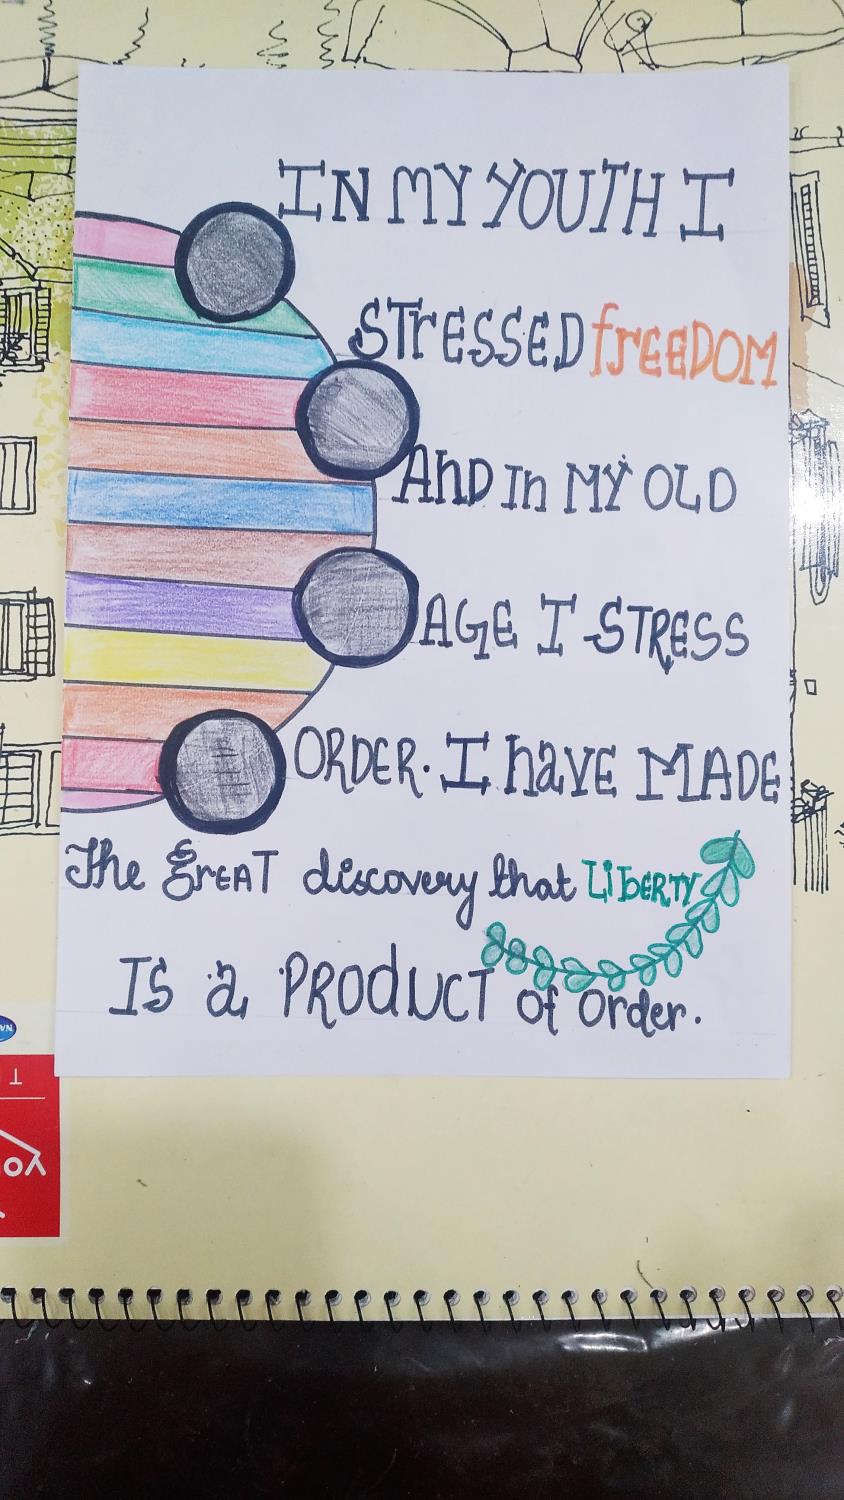 IN MY YOUTH I
STrESSED frEEDOM
AnD In MY OLD
AGE I STRESS
ORDER. I haVE MADE
The GrEAT discovery that LibERTY
Is a PRODUCT of Order.